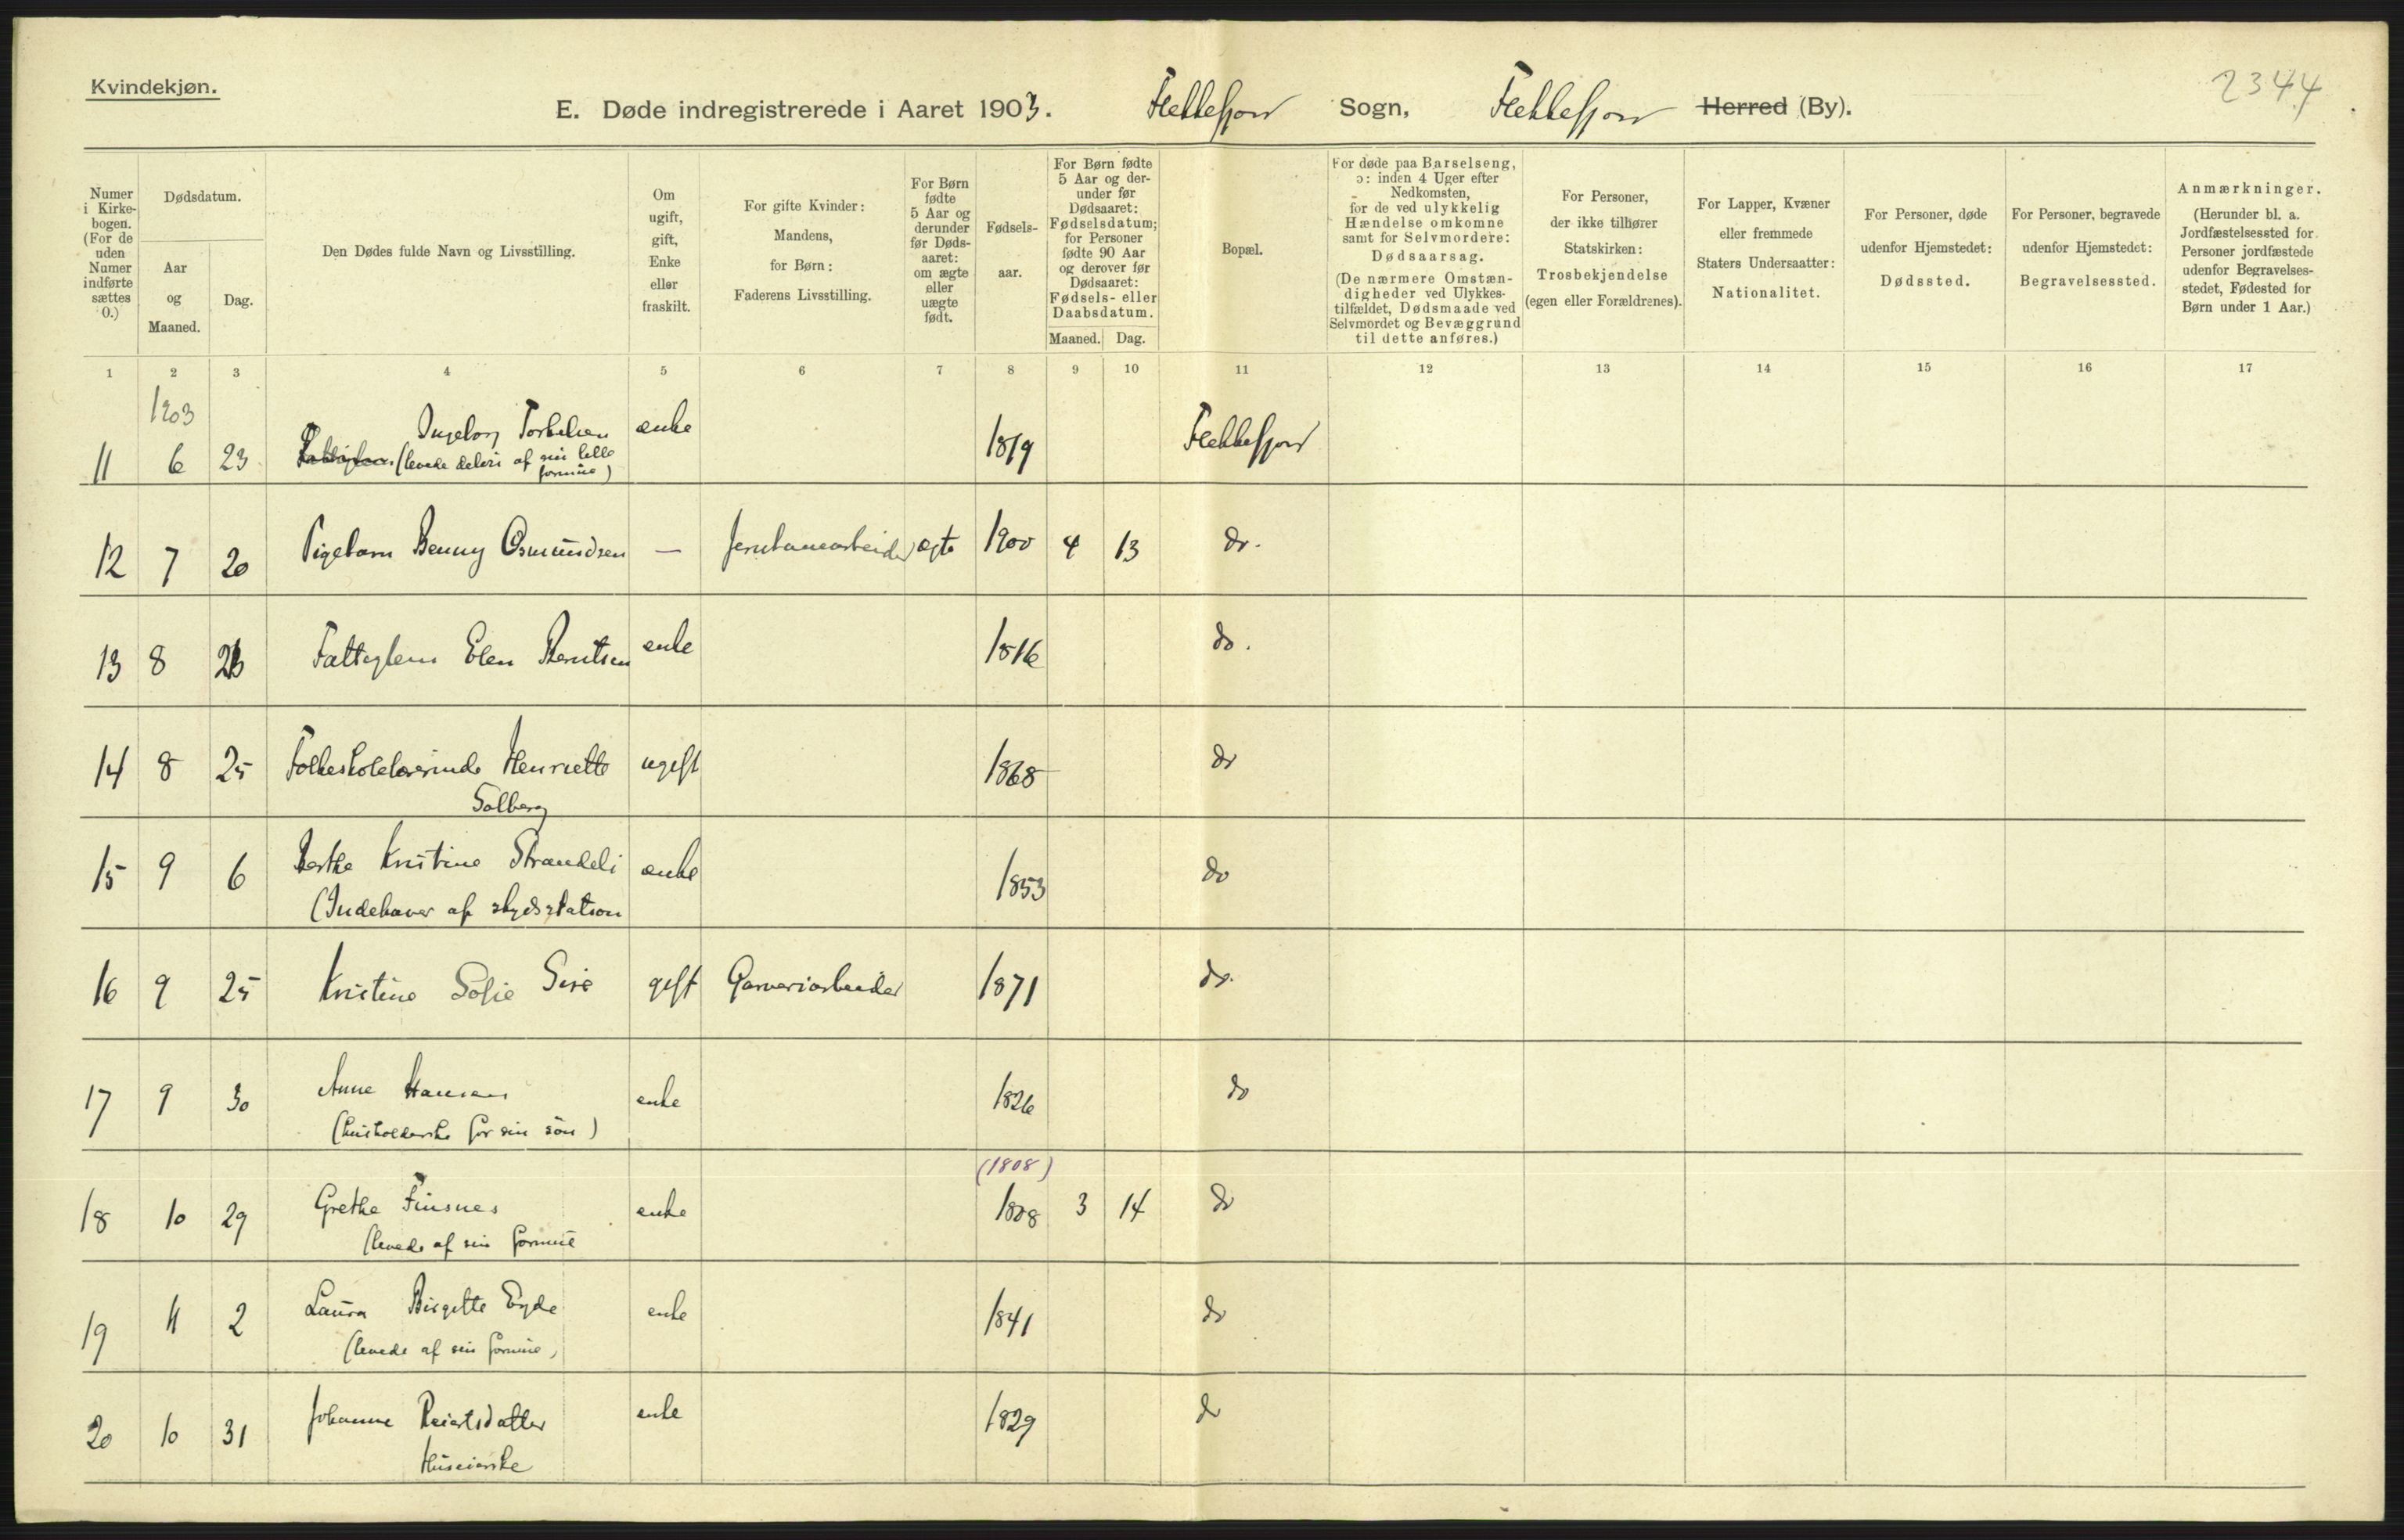 Kvindekjøn.
2344
E. Døde indregistrerede i Aaret 1903. Flekkefjord Sogn, Flekkefjord Herred (By).
Numer i Kirkebogen. (For de uden Numer indførte sættes 0.)
Dødsdatum.
Aar og Maaned.
Dag.
Den Dødes fulde Navn og Livsstilling.
Om ugift, gift, Enke eller fraskilt.
For gifte Kvinder: Mandens, for Børn: Faderens Livsstilling.
For Børn fødte 5 Aar og derunder før Dødsaaret: om ægte eller uægte født.
Fødselsaar.
For Børn fødte 5 Aar og derunder før Dødsaaret: Fødselsdatum; for Personer fødte 90 Aar og derover før Dødsaaret: Fødsels- eller Daabsdatum.
Maaned. Dag.
Bopæl.
For døde paa Barselseng, ɔ: inden 4 Uger efter Nedkomsten, for de ved ulykkelig Hændelse omkomne samt for Selvmordere: Dødsaarsag. (De nærmere Omstændigheder ved Ulykkestilfældet, Dødsmaade ved Selvmordet og Bevæggrund til dette anføres.)
For Personer, der ikke tilhører Statskirken: Trosbekjendelse (egen eller Forældrenes).
For Lapper, Kvæner eller fremmede Staters Undersaatter: Nationalitet.
For Personer, døde udenfor Hjemstedet: Dødssted.
For Personer, begravede udenfor Hjemstedet: Begravelsessted.
Anmærkninger. (Herunder bl. a. Jordfæstelsessted for Personer jordfæstede udenfor Begravelsesstedet, Fødested for Børn under 1 Aar.)
1 2 3 4 5 6 7 8 9 10 11 12 13 14 15 16 17
1903
11 6 23 Ingeborg Torkelsen enke 1819 Flekkefjord
Fattiglem (levede delvis af sin lille
formue)
12 7 20 Pigebarn Benny Osmundsen — Jernbanearbeider ægte 1900 4 13 do.
13 8 23 Fattiglem Elen Berntsen enke 1816 do.
14 8 25 Folkeskolelærerinde Henriette ugift 1868 do
Solberg
15 9 6 Berthe Kristine Strandeli enke 1853 do
(Indehaver af skydsstation
16 9 25 Kristine Sofie Sire gift Garveriarbeider 1871 do.
17 9 30 Anne Hansen enke 1826 do
(husholderske for sin søn)
(1808)
18 10 29 Grethe Finsnes enke 1808 3 14 do
(levede af sin formue
19 11 2 Laura Birgitte Eyde enke 1841 do
(levede af sin formue)
20 10 31 Johanne Reiersdatter enke 1829 do
Huseierske